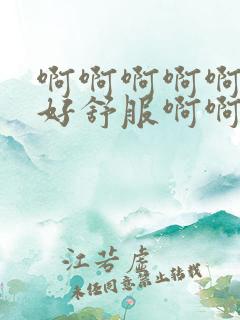 啊啊啊啊啊
好舒服啊啊
江苦虚
未经同意禁止转载